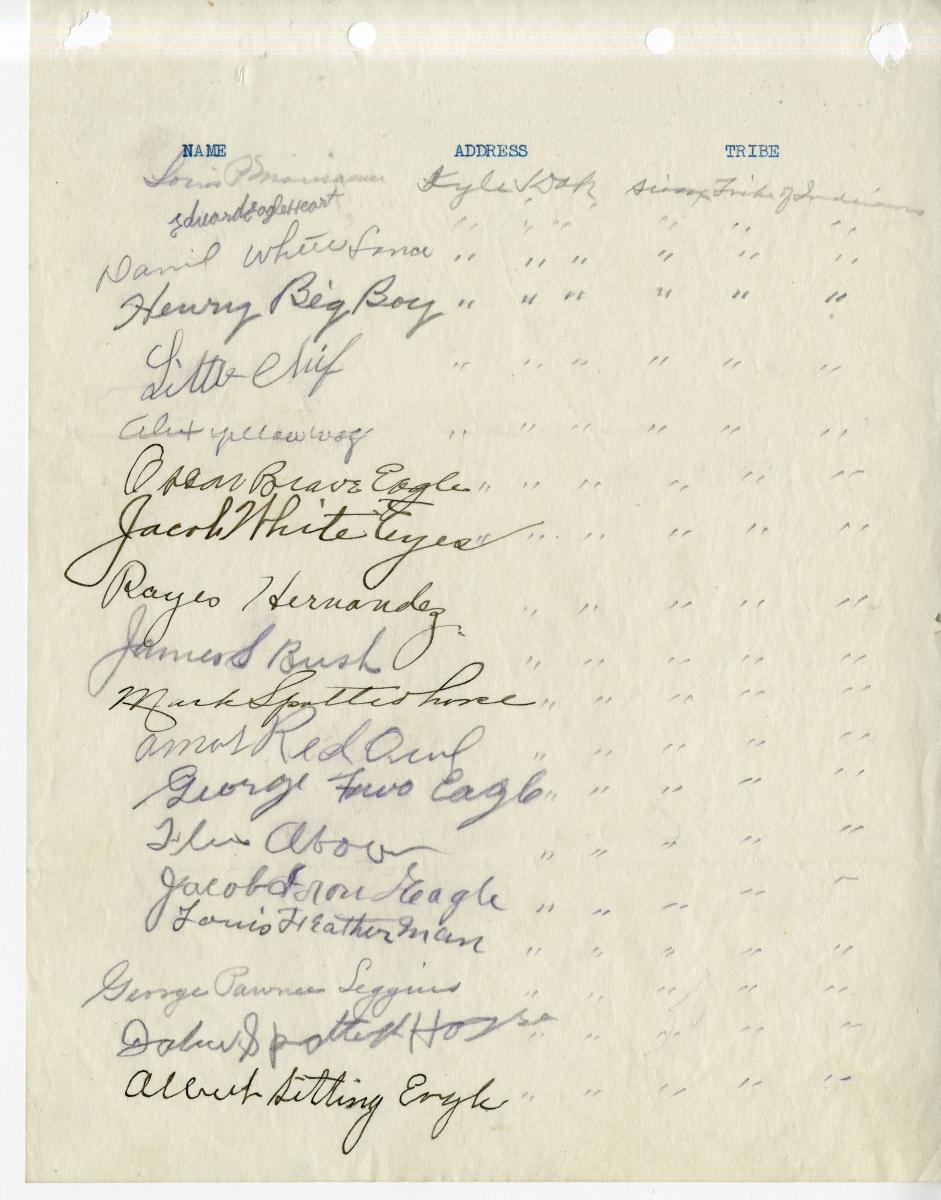 NAME ADDRESS TRIBE
Louis P Kyle S Dak Sioux Tribe of Indians
Edward Eagle Heart " " " " " "
Daniel White Lance " " " " " "
Henry Big Boy " " " " " "
Little Chif " " " " " "
Alex yellow " " " " " "
Oscar Brave Eagle " " " " " "
Jacob White Eyes " " " " " "
Rayes Hernandez " " " " "
James S Bush " " " " "
Mark Spotted horse " " " " "
Amos Red Owl " " " " "
George Two Eagle " " " " "
Above " " " " "
Jacob Iron Eagle " " " " "
Louis Feather Man " " " " "
George Pawnee Leggins " " " " "
John Spotted Horse " " " " "
Albert Sitting Eagle " " " " "